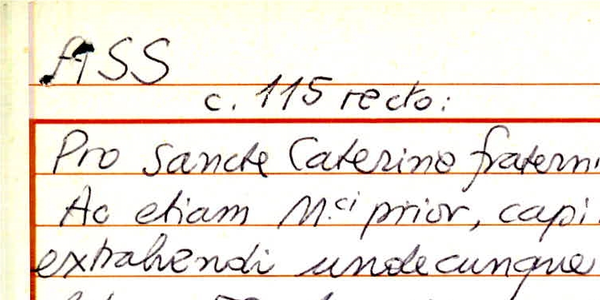 ASS
c. 115 recto:
Pro Sancte Caterine fraterni
Ac etiam M.ci prior, capi
extrahendi undecunque